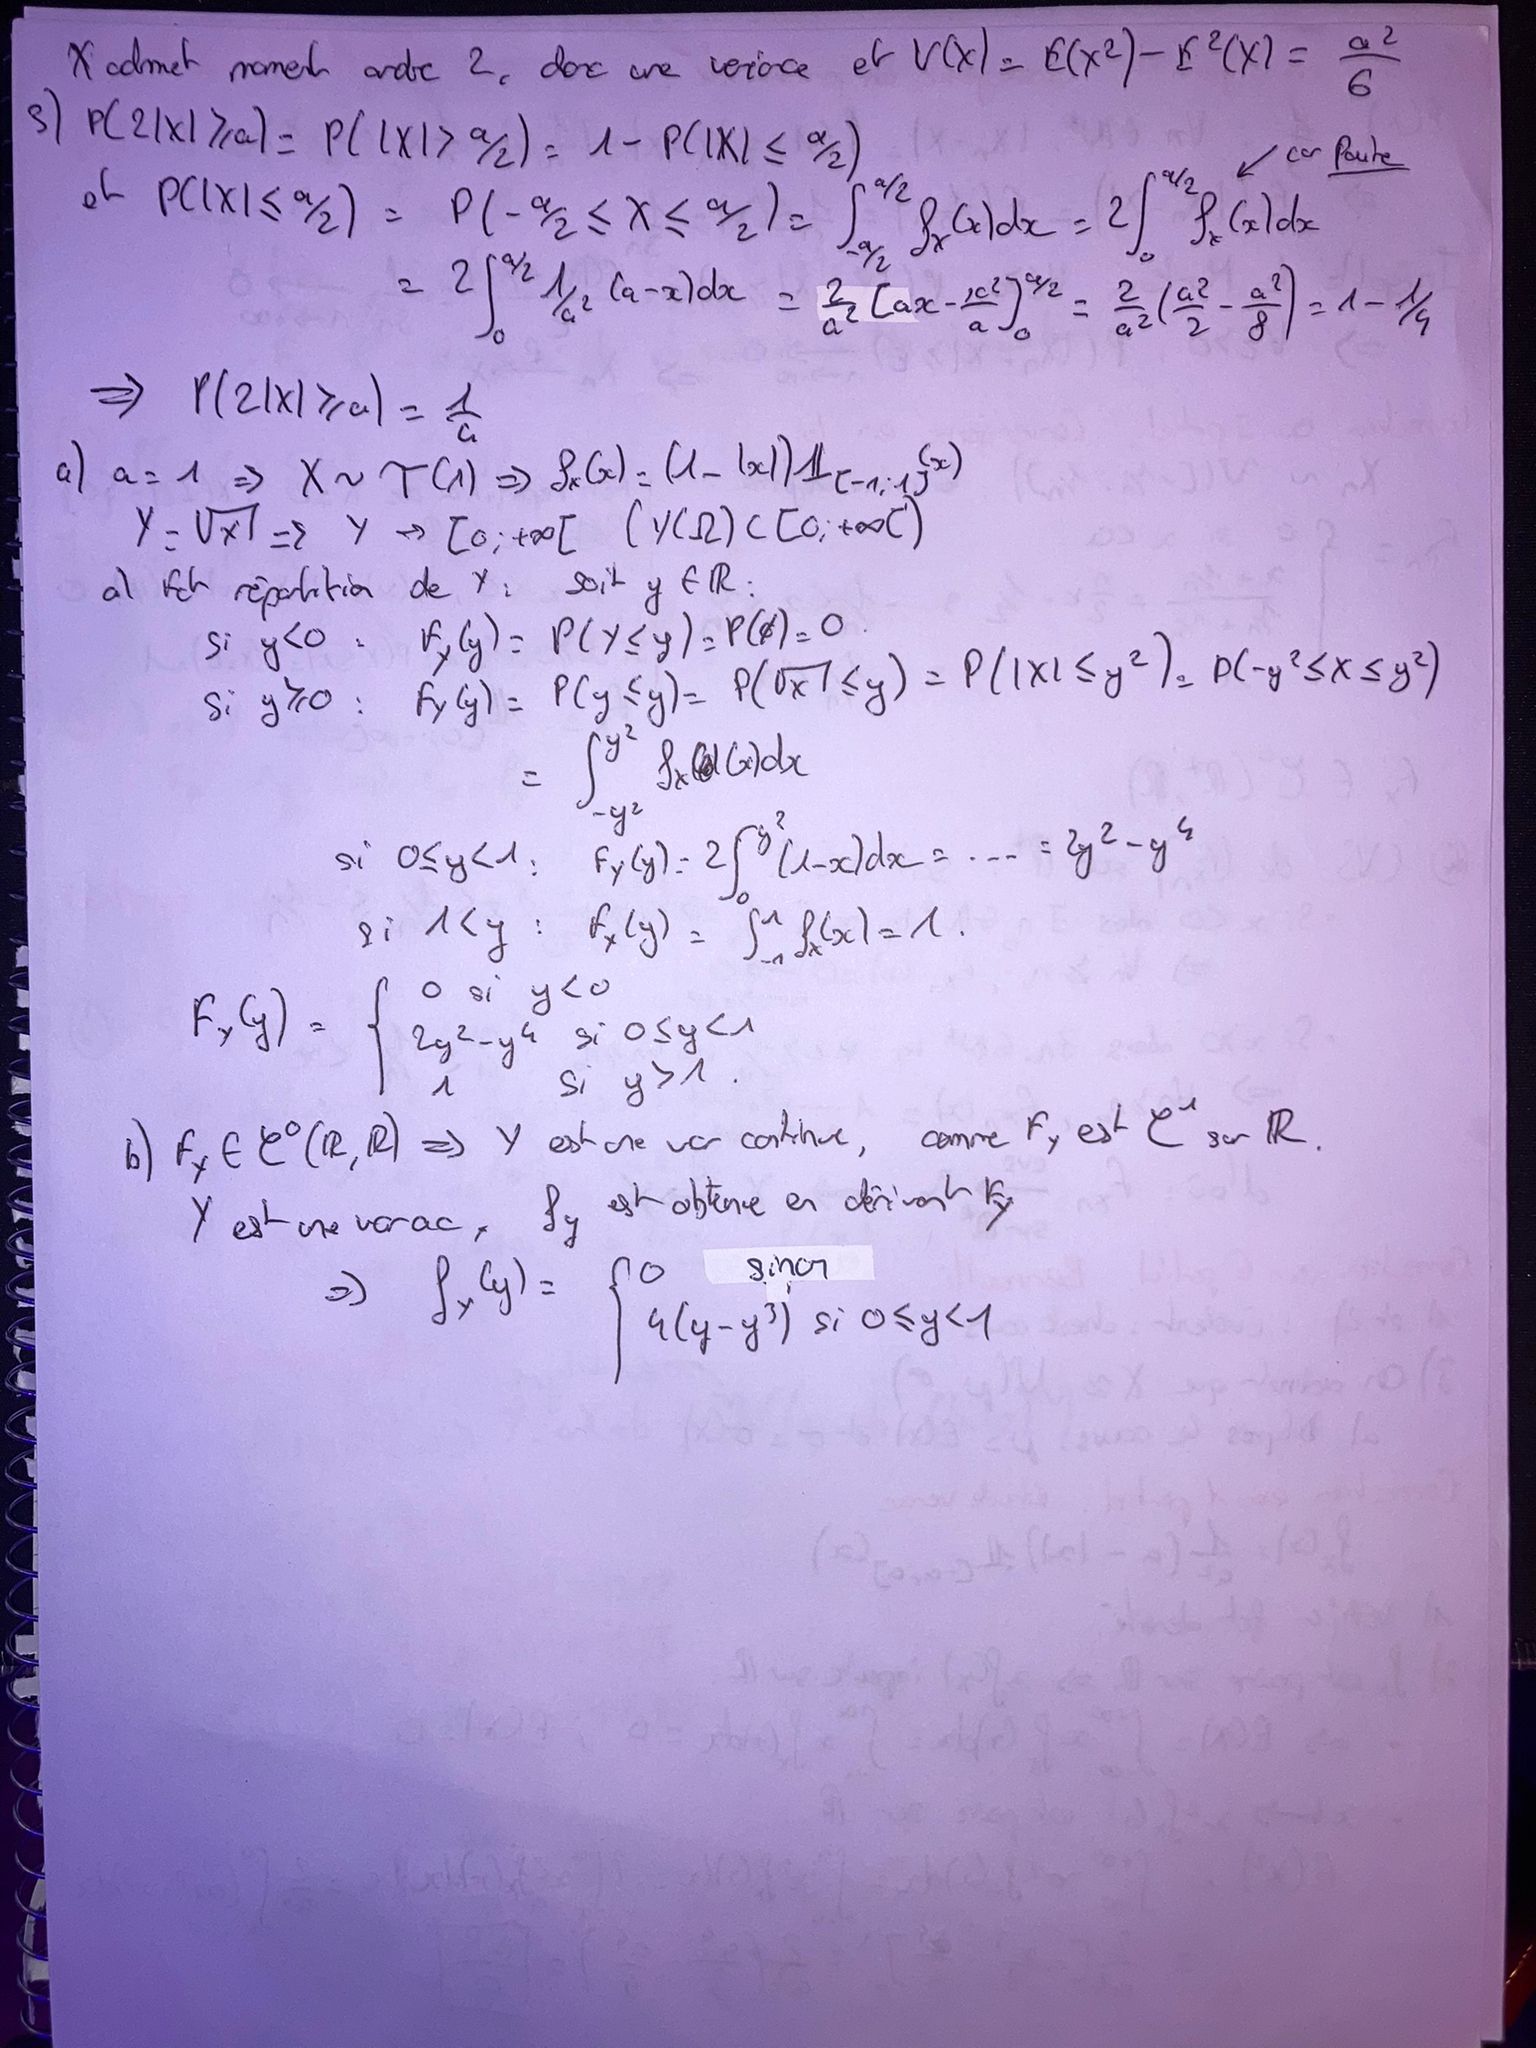 X admet moment ordre 2, donc une variance et V(X) = E(X²) - E²(X) = a²/6
3) P(2|X| ≥ a) = P(|X| > a/2) = 1 - P(|X| ≤ a/2)
car Paire
et P(|X| ≤ a/2) = P(-a/2 ≤ X ≤ a/2) = ∫_{-a/2}^{a/2} f_X(x)dx = 2∫_0^{a/2} f_X(x)dx
= 2∫_0^{a/2} 1/a² (a-x)dx = 2/a² [ax - x²/a]_0^{a/2} = 2/a² (a²/2 - a²/8) = 1 - 1/4
⇒ P(2|X| ≥ a) = 1/4
4) a = 1 ⇒ X ~ T(1) ⇒ f_X(x) = (1-|x|) 𝟙_{[-1;1]}(x)
Y = √|X| ⇒ Y → [0;+∞[ (Y(Ω) ⊂ [0;+∞[)
a) Fct répartition de Y : soit y ∈ ℝ :
si y<0 : F_Y(y) = P(Y ≤ y) = P(∅) = 0.
si y≥0 : F_Y(y) = P(y ≤ y) = P(√|X| ≤ y) = P(|X| ≤ y²) = P(-y² ≤ X ≤ y²)
= ∫_{-y²}^{y²} f_X(x)dx
si 0≤y<1 : F_Y(y) = 2∫_0^{y²} (1-x)dx = ... = 2y² - y⁴
si 1<y : F_Y(y) = ∫_{-1}^{1} f_X(x) = 1.
F_Y(y) = { 0 si y<0
2y² - y⁴ si 0≤y<1
1 si y>1.
b) F_Y ∈ C⁰(ℝ,ℝ) ⇒ Y est une var continue, comme F_Y est C¹ sur ℝ.
Y est une varac, f_y est obtenue en dérivant F_Y
⇒ f_Y(y) = { 0 sinon
4(y-y³) si 0≤y<1